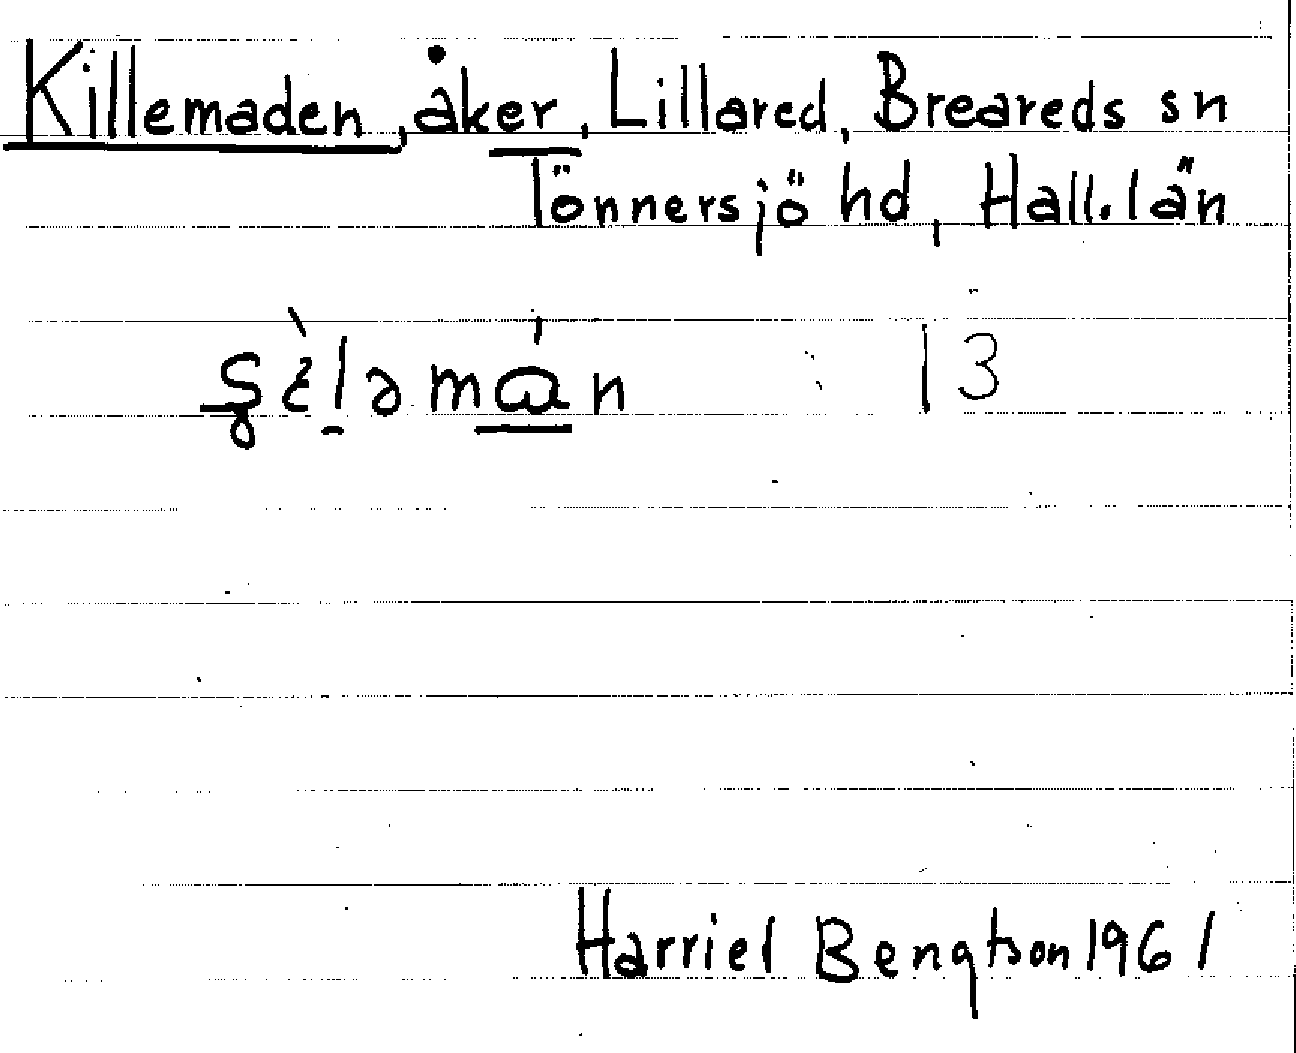 Killemaden, åker, Lillared, Breareds sn
Tönnersjö hd, Hall. län
13
Harriel Bengtson 1961